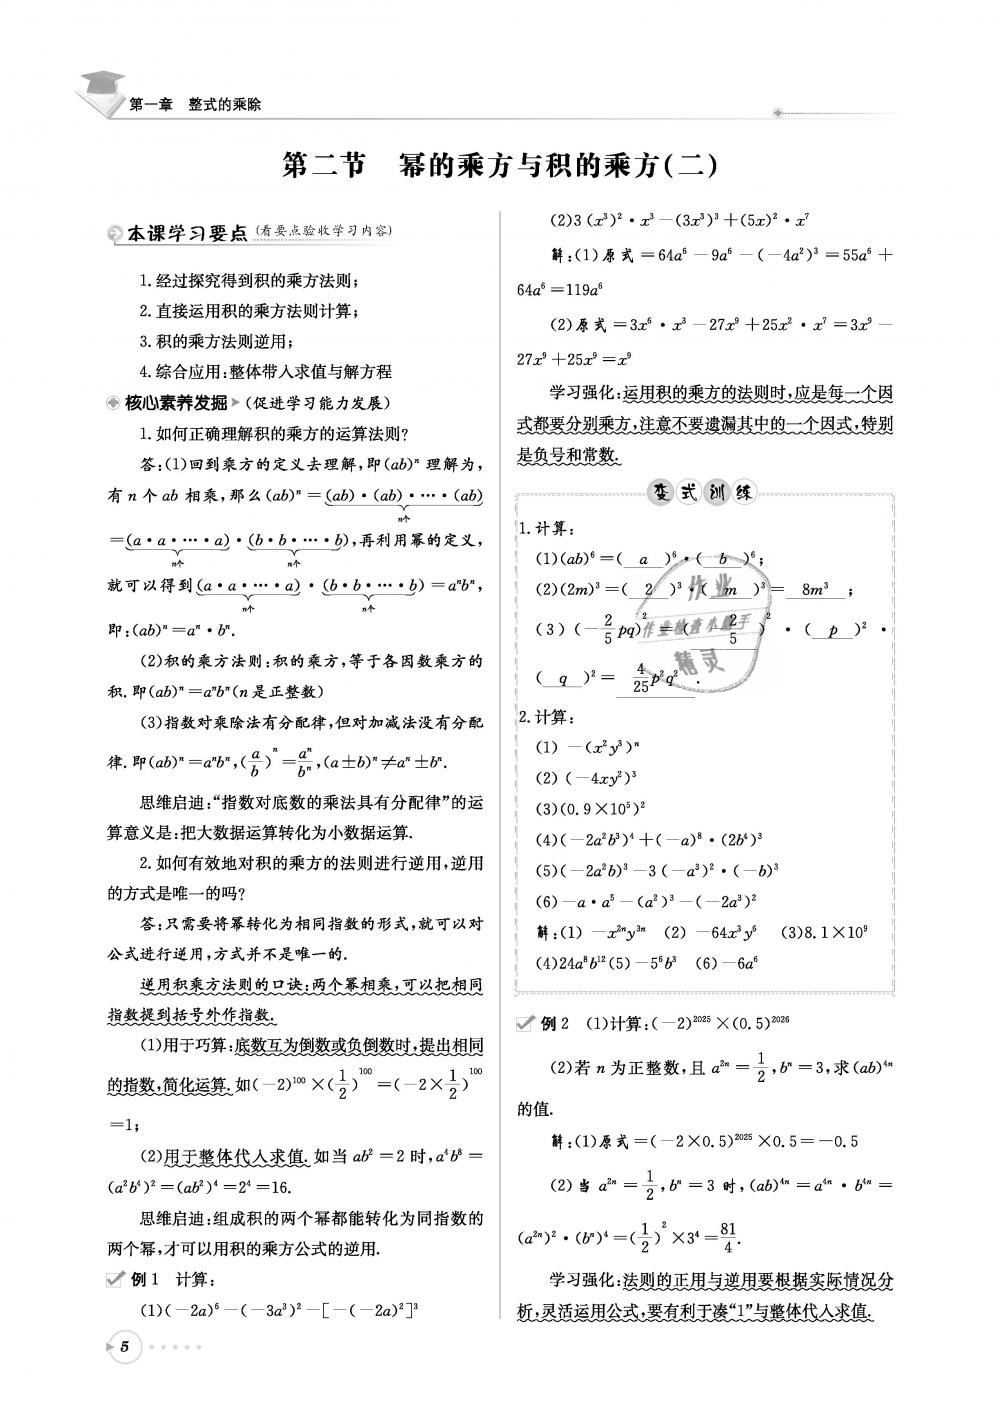 第一章　整式的乘除
第二节　幂的乘方与积的乘方(二)
本课学习要点(看要点验收学习内容)
1.经过探究得到积的乘方法则；
2.直接运用积的乘方法则计算；
3.积的乘方法则逆用；
4.综合应用:整体带入求值与解方程
核心素养发掘(促进学习能力发展)
1.如何正确理解积的乘方的运算法则?
答:(1)回到乘方的定义去理解,即(ab)ⁿ 理解为,
有 n 个 ab 相乘,那么(ab)ⁿ =(ab)·(ab)·…·(ab)
n个
=(a·a·…·a)·(b·b·…·b),再利用幂的定义,
n个　n个
就可以得到(a·a·…·a)·(b·b·…·b)=aⁿbⁿ,
n个　n个
即:(ab)ⁿ=aⁿ·bⁿ.
(2)积的乘方法则:积的乘方,等于各因数乘方的
积.即(ab)ⁿ=aⁿbⁿ(n是正整数)
(3)指数对乘除法有分配律,但对加减法没有分配
律.即(ab)ⁿ=aⁿbⁿ,(a/b)ⁿ=aⁿ/bⁿ,(a±b)ⁿ≠aⁿ±bⁿ.
思维启迪:“指数对底数的乘法具有分配律”的运
算意义是:把大数据运算转化为小数据运算.
2.如何有效地对积的乘方的法则进行逆用,逆用
的方式是唯一的吗?
答:只需要将幂转化为相同指数的形式,就可以对
公式进行逆用,方式并不是唯一的.
逆用积乘方法则的口诀:两个幂相乘,可以把相同
指数提到括号外作指数.
(1)用于巧算:底数互为倒数或负倒数时,提出相同
的指数,简化运算.如(-2)¹⁰⁰×(1/2)¹⁰⁰=(-2×1/2)¹⁰⁰
=1；
(2)用于整体代入求值.如当 ab²=2时,a⁴b⁸=
(a²b⁴)²=(ab²)⁴=2⁴=16.
思维启迪:组成积的两个幂都能转化为同指数的
两个幂,才可以用积的乘方公式的逆用.
例1　计算：
(1)(-2a)⁶-(-3a³)²-[-(-2a)²]³
5
(2)3(x³)²·x³-(3x³)³+(5x)²·x⁷
解:(1)原式=64a⁶-9a⁶-(-4a²)³=55a⁶+
64a⁶=119a⁶
(2)原式=3x⁶·x³-27x⁹+25x²·x⁷=3x⁹-
27x⁹+25x⁹=x⁹
学习强化:运用积的乘方的法则时,应是每一个因
式都要分别乘方,注意不要遗漏其中的一个因式,特别
是负号和常数.
变式训练
1.计算：
(1)(ab)⁶=( a )⁶·( b )⁶；
(2)(2m)³=( 2 )³·( m )³= 8m³ ；
(3)(-2/5pq)²=(-2/5)²·( p )²·
( q )²= 4/25p²q² .
作业
作业检查小助手
精灵
2.计算：
(1)-(x²y³)ⁿ
(2)(-4xy²)³
(3)(0.9×10⁵)²
(4)(-2a²b³)⁴+(-a)⁸·(2b⁴)³
(5)(-2a²b)³-3(-a³)²·(-b)³
(6)-a·a⁵-(a²)³-(-2a³)²
解:(1)-x²ⁿy³ⁿ (2)-64x³y⁶ (3)8.1×10⁹
(4)24a⁸b¹²(5)-5⁶b³ (6)-6a⁶
例2　(1)计算:(-2)²⁰²⁵×(0.5)²⁰²⁶
(2)若 n 为正整数,且 a²ⁿ=1/2,bⁿ=3,求(ab)⁴ⁿ
的值.
解:(1)原式=(-2×0.5)²⁰²⁵×0.5=-0.5
(2)当 a²ⁿ=1/2,bⁿ=3时,(ab)⁴ⁿ=a⁴ⁿ·b⁴ⁿ=
(a²ⁿ)²·(bⁿ)⁴=(1/2)²×3⁴=81/4.
学习强化:法则的正用与逆用要根据实际情况分
析,灵活运用公式,要有利于凑“1”与整体代入求值.